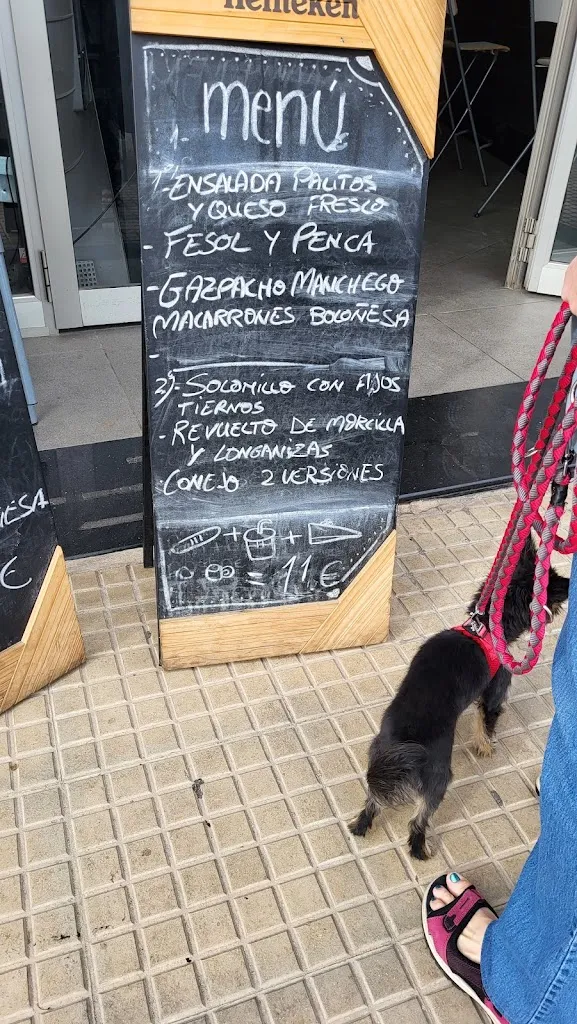 Heineken
menú
1º-ENSALADA PALITOS
Y QUESO FRESCO
- FESOL Y PENCA
-GAZPACHO MANCHEGO
MACARRONES BOLOÑESA
-
2º)-SOLOMILLO CON AJOS
TIERNOS
- REVUELTO DE MORCILLA
Y LONGANIZAS
CONEJO 2 VERSIONES
+ + 
= 11 €
ESA
€